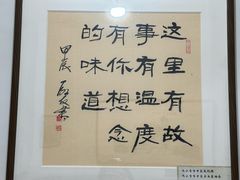 这里有故
事有温度
有你想念
的味道
甲辰